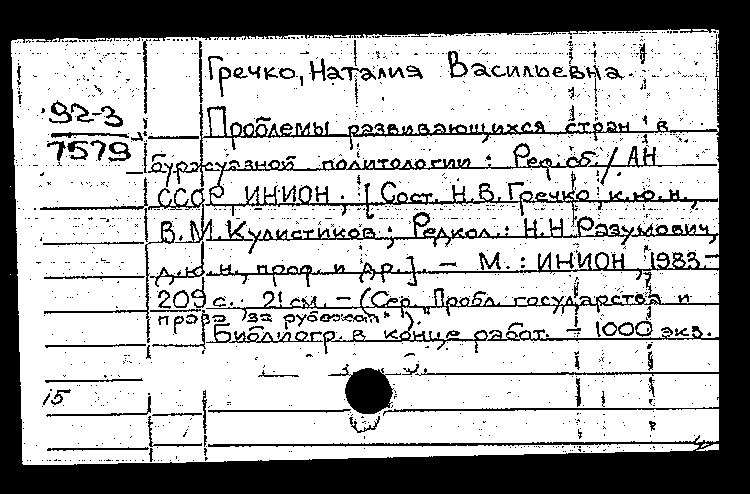 Гречко, Наталия Васильевна.
92-3
7579
Проблемы развивающихся стран в
буржуазной политологии : Реф. сб. / АН
СССР, ИНИОН ; [Сост. Н.В. Гречко, к.ю.н.,
В.М. Кулистиков ; Редкол.: Н.Н. Разумович,
д.ю.н., проф. и др.]. — М. : ИНИОН, 1983.—
209 с. ; 21 см. — (Сер. "Пробл. государства и
права за рубежом").
Библиогр. в конце работ. — 1000 экз.
15